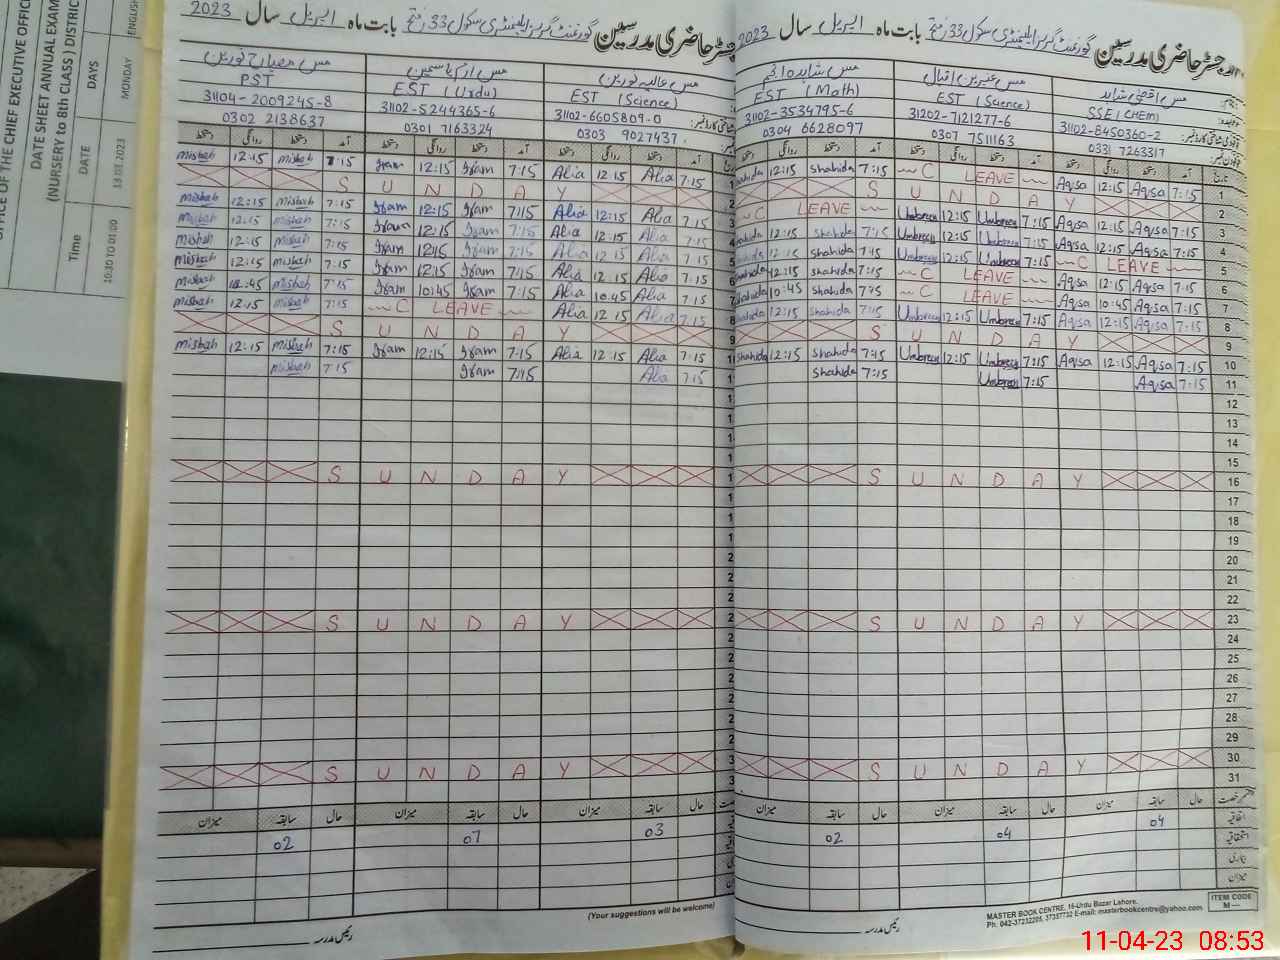 OFFICE OF THE CHIEF EXECUTIVE OFFIC
DATE SHEET ANNUAL EXAM
(NURSERY to 8th CLASS) DISTRIC
Time DATE DAYS
10:30 TO 01:00 13.03.2023 MONDAY ENGLISH
رجسٹر حاضری مدرسین گورنمنٹ گرلز ایلیمنٹری سکول 33 بابت ماہ اپریل سال 2023
مس اقصیٰ شاہد مس عنبرین اقبال مس شاہدہ انجم
SSE (CHEM) EST (Science) EST (Math)
31102-8450360-2 31202-7121277-6 31102-3534795-6
0331 7263317 0307 7511163 0304 6628097
تاریخ آمد دستخط روانگی دستخط آمد دستخط روانگی دستخط آمد دستخط روانگی دستخط
1 7:15 Aqsa 12:15 Aqsa C LEAVE Shahida 7:15 Shahida 12:15
2 S U N D A Y
3 7:15 Aqsa 12:15 Aqsa 7:15 Umbreen 12:15 Umbreen C LEAVE
4 7:15 Aqsa 12:15 Aqsa 7:15 Umbreen 12:15 Umbreen 7:15 Shahida 12:15 Shahida
5 C LEAVE 7:15 Umbreen 12:15 Umbreen 7:45 Shahida 12:15 Shahida
6 7:15 Aqsa 12:15 Aqsa C LEAVE 7:15 Shahida 12:15 Shahida
7 7:15 Aqsa 10:45 Aqsa C LEAVE Shahida 10:45 Shahida
8 7:15 Aqsa 12:15 Aqsa 7:15 Umbreen 12:15 Umbreen 7:15 Shahida 12:15 Shahida
9 S U N D A Y
10 7:15 Aqsa 12:15 Aqsa 7:15 Umbreen 12:15 Umbreen 7:45 Shahida 12:15 Shahida
11 7:15 Aqsa 7:15 Umbreen 7:15 Shahida
12
13
14
15
16 S U N D A Y
17
18
19
20
21
22
23 S U N D A Y
24
25
26
27
28
29
30 S U N D A Y
31
حال سابقہ میزان حال سابقہ میزان حال سابقہ میزان
اتفاقیہ 04 04 02
استحقاقیہ
بیماری
میزان
ITEM CODE
M—
MASTER BOOK CENTRE, 16-Urdu Bazar Lahore.
Ph: 042-37232205, 37357732 E-mail: masterbookcentre@yahoo.com
رئیس مدرسہ
رجسٹر حاضری مدرسین گورنمنٹ گرلز ایلیمنٹری سکول 33 بابت ماہ اپریل سال 2023
مس عالیہ نورین مس ارم یاسمین مس مصباح نورین
EST (Science) EST (Urdu) PST
31102-6605809-0 31102-5244365-6 31104-2009245-8
0303 9027437 0301 7163324 0302 2138637
آمد دستخط روانگی دستخط آمد دستخط روانگی دستخط آمد دستخط روانگی دستخط
7:15 Alia 12:15 Alia 7:15 Iram 12:15 Iram 7:15 Misbah 12:15 Misbah
S U N D A Y
7:15 Alia 12:15 Alia 7:15 Iram 12:15 Iram 7:15 Misbah 12:15 Misbah
7:15 Alia 12:15 Alia 7:15 Iram 12:15 Iram 7:15 Misbah 12:15 Misbah
7:15 Alia 12:15 Alia 7:15 Iram Iram 7:15 Misbah 12:15 Misbah
7:15 Alia 12:15 Alia 7:15 Iram 12:15 Iram 7:15 Misbah 12:15 Misbah
7:15 Alia 10:45 Alia 7:15 Iram 10:45 Iram 7:15 Misbah Misbah
7:15 Alia 12:15 Alia C LEAVE 7:15 Misbah 12:15 Misbah
S U N D A Y
7:15 Alia 12:15 Alia 7:15 Iram 12:15 Iram 7:15 Misbah 12:15 Misbah
7:15 Alia 7:15 Iram 7:15 Misbah
S U N D A Y
S U N D A Y
S U N D A Y
حال سابقہ میزان حال سابقہ میزان حال سابقہ میزان
03 07 02
(Your suggestions will be welcome)
رئیس مدرسہ
11-04-23 08:53